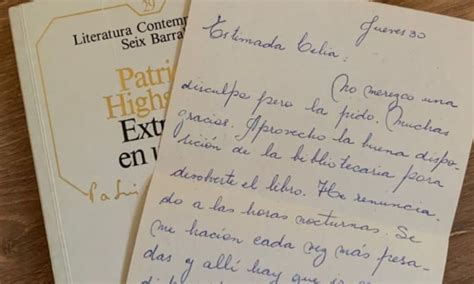 Literatura Contemp
Seix Barra
Patri
Highs
Extr
en u
Jueves 30
Estimada Celia:
No merezco una
disculpa pero la pido. Muchas
gracias. Aprovecho la buena dispo-
sición de la bibliotecaria para
devolverte el libro. He renuncia-
do a las horas nocturnas. Se
me hacían cada vez más pesa-
das y allí hay que